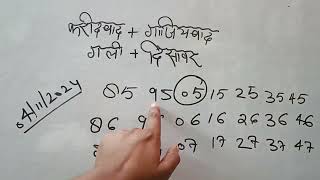 फरीदाबाद + गाजियाबाद
गली + दिसावर
04/11/2024
85 95 05 15 25 35 45
86 06 16 26 36 46
07 17 27 37 47